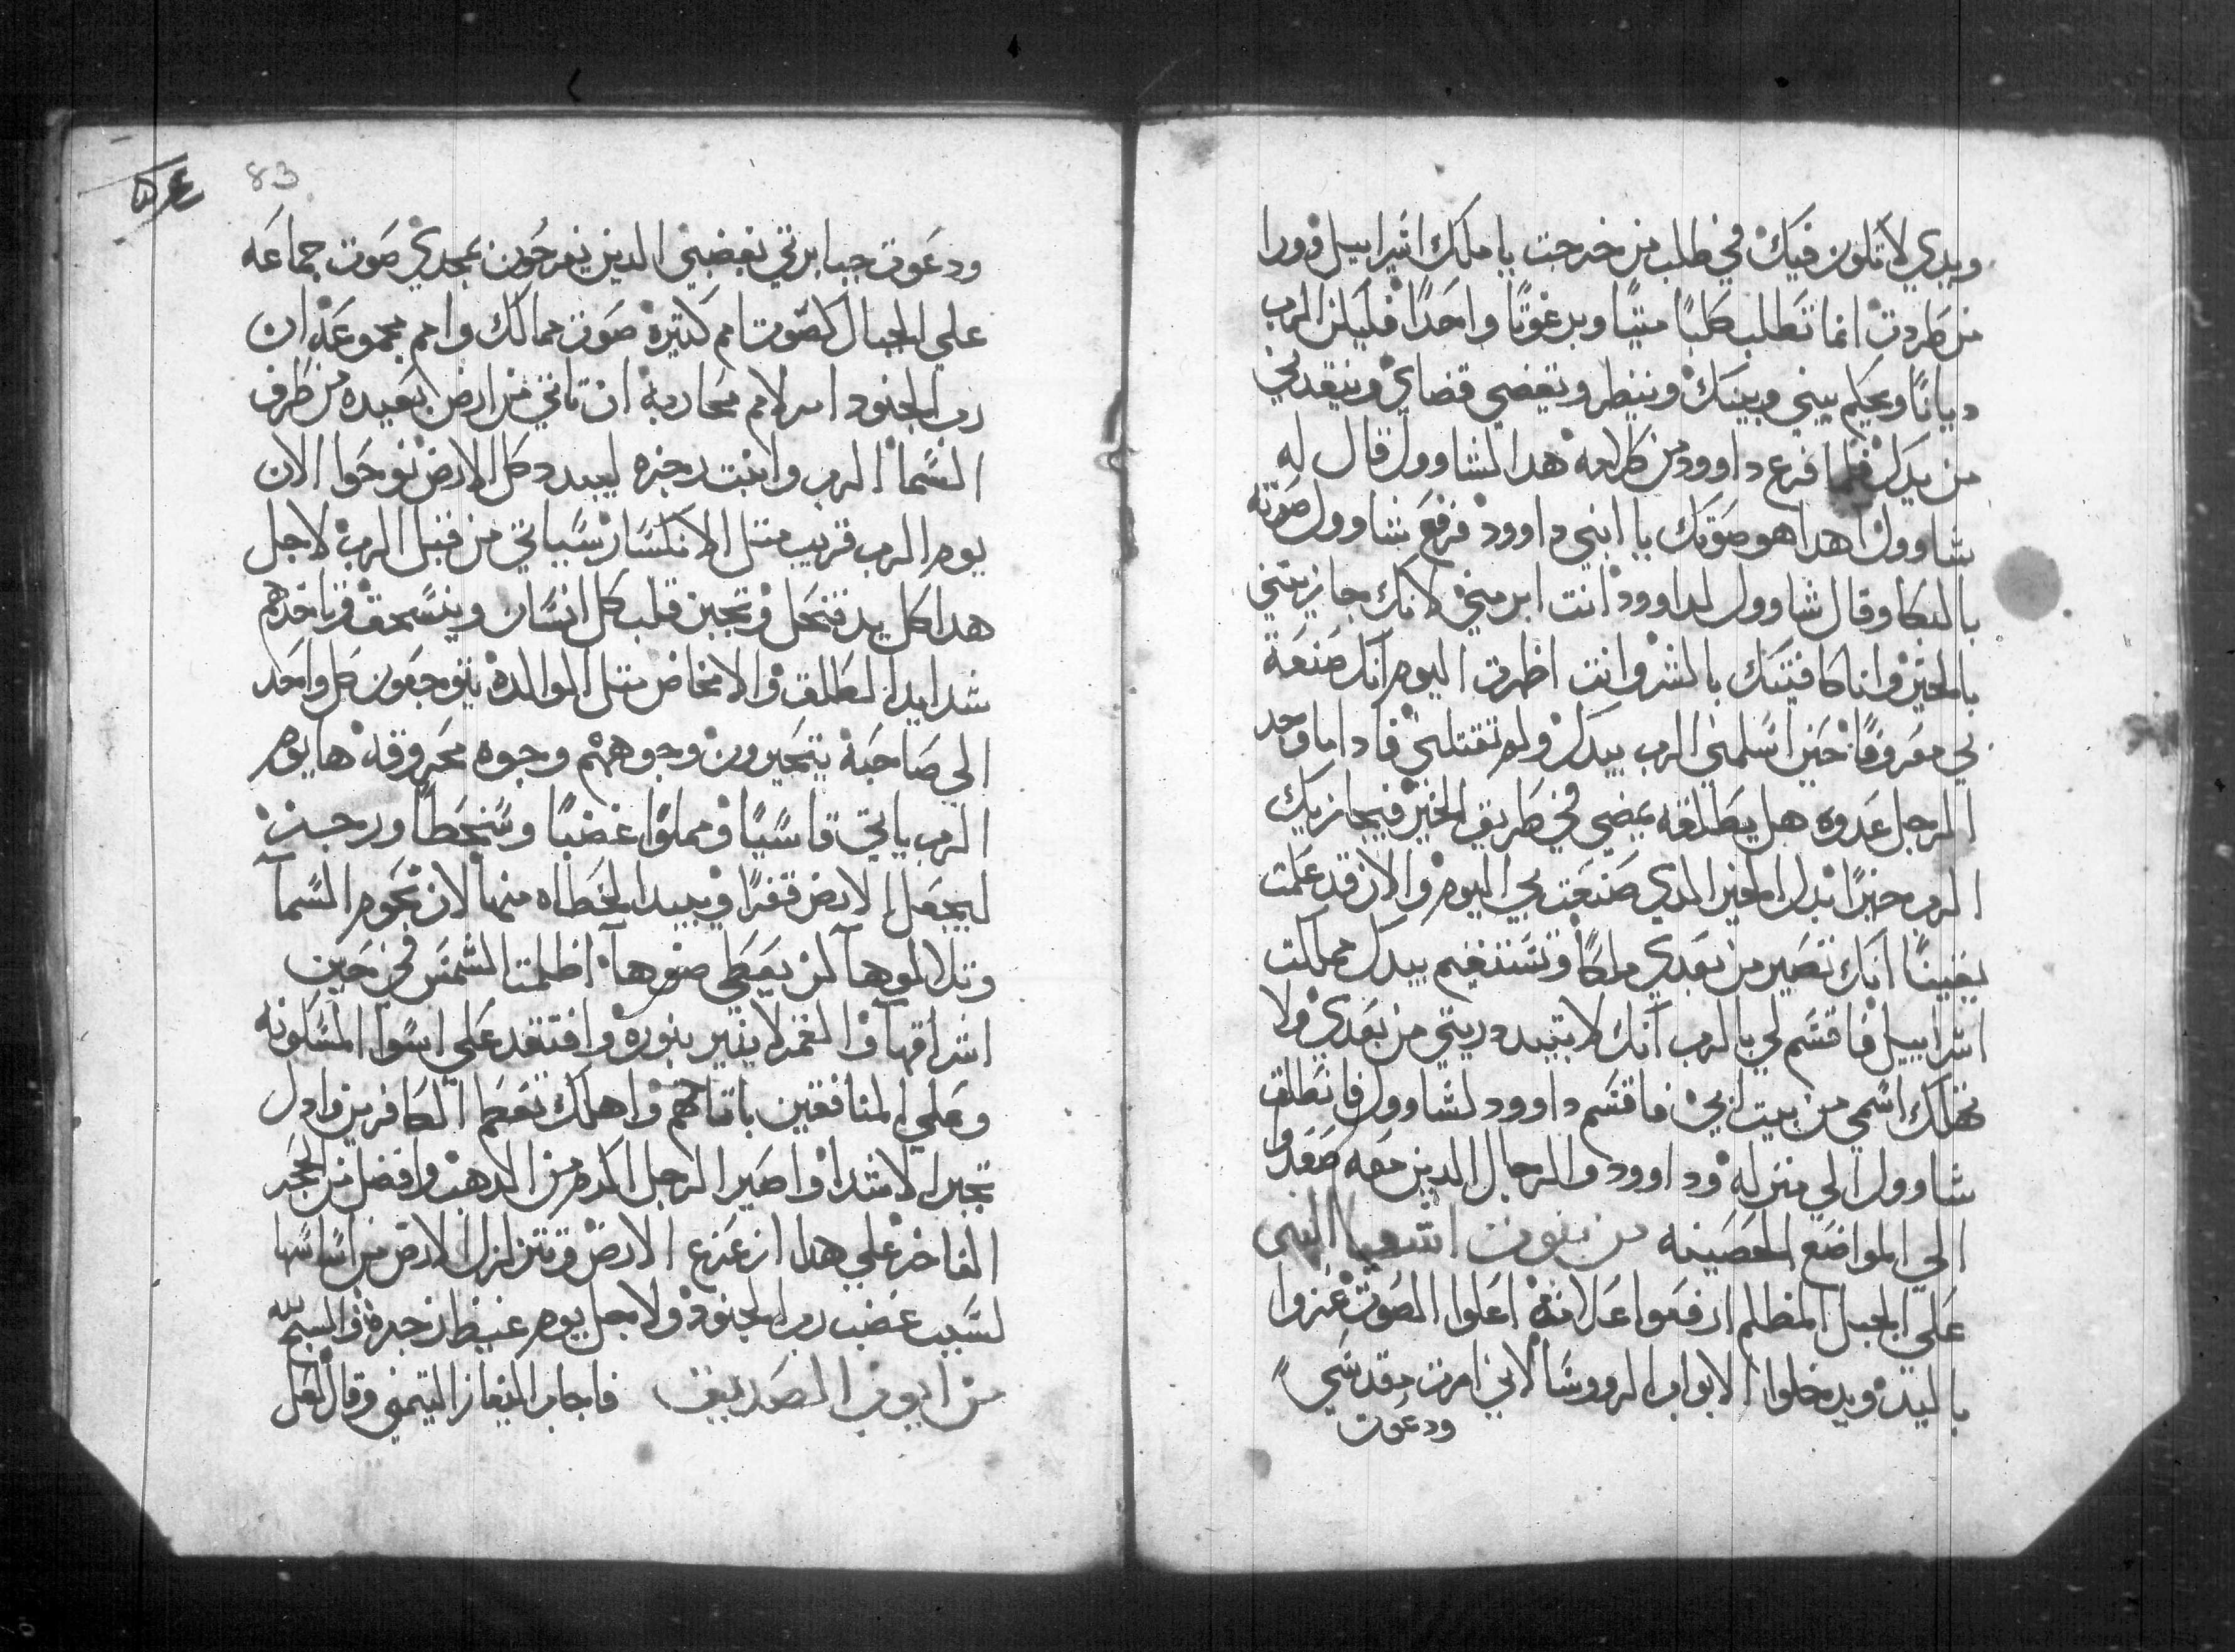 ويدي لا تكون فيك في طلب من خرجت يا ملك اسراييل و ورا
من طردت انما تطلب كلبًا ميتًا وبرغوتًا واحدًا فليكن الرب
ديانًا ويحكم بيني وبينك وينظر ويقضي قضاي وينقدني
من يدك فلما فرغ داوود من كلامه هدا لشاوول قال له
شاوول اهدا هو صوتك يا ابني داوود فرفع شاوول صوته
بالبكا وقال شاوول لداوود انت ابر مني لانك جازيتني
بالخير وانا كافيتك بالشر وانت اظهرت اليوم انك صنعة
بي معروفًا حين اسلمني الرب بيدك ولم تقتلني فادا ما وجد
الرجل عدوه هل يطلقه يمضي في طريق الخير فيجازيك
الرب خيرًا بدل الخير الدي صنعت بي اليوم والان قد علمت
يقينًا انك تصير من بعدي ملكًا وتستقيم بيدك مملكت
اسراييل فاقسم لي بالرب انك لا تبيد دريتي من بعدي ولا
تهلك اسمي من بيت ابي فاقسم داوود لشاوول فانطلق
شاوول الي منزله وداوود والرجال الدين معه صعدوا
الي المواضع الحصينه من نبوت اشعيا النبي
علي الجبل المظلم ارفعوا علامة اعلوا الصوت عزوا
باليد ويدخلوا الابواب الرووسا لاني امرت مقدسي
ودعوت
83
ودعوت جبابرتي بغضبي الدين يفرحون بمجدي صوت جماعه
علي الجبال كصوت امم كتيرة صوت ممالك وامم مجموعة ان
رب الجنود امر لامم محاربة ان تاتي من ارض بعيده من طرف
السما الرب وانبت رجزه ليبدد كل الارض نوحوا الان
يوم الرب قريب متل الانكسار سياتي من قبل الرب لاجل
هدا كل يد تنحل وتجبن قلب كل انسان وينسحق وتاخدهم
شدايد الطلق والامخاض متل الوالدة يتوجعون كل واحد
الي صاحبة يتحيرون وجوههم وجوه محروقة ها يوم
الرب ياتي قاسيًا ومملوا غضبًا وسخطًا ورجز
ليجعل الارض قفرًا ويبيد الخطاه منها لان نجوم السما
وتلالوها لن يعطي ضوها اظلمت الشمس في حين
اشراقها والقمر لا ينير بنوره وافتقد علي اسوا المسكونه
وعلي المنافقين باتامهم واهلك تعظم الكافرين وادل
تجبر الاشدا واصير الرجل اكرم من الدهب وافضل من الحجر
الفاخر علي هدا ازعزع الارض وتتزلزل الارض من اساسها
لسبب غضب رب الجنود ولاجل يوم غيظ زجره والسبح لله
من ايوب الصديق فاجاب اليفاز التيمني وقال لعل